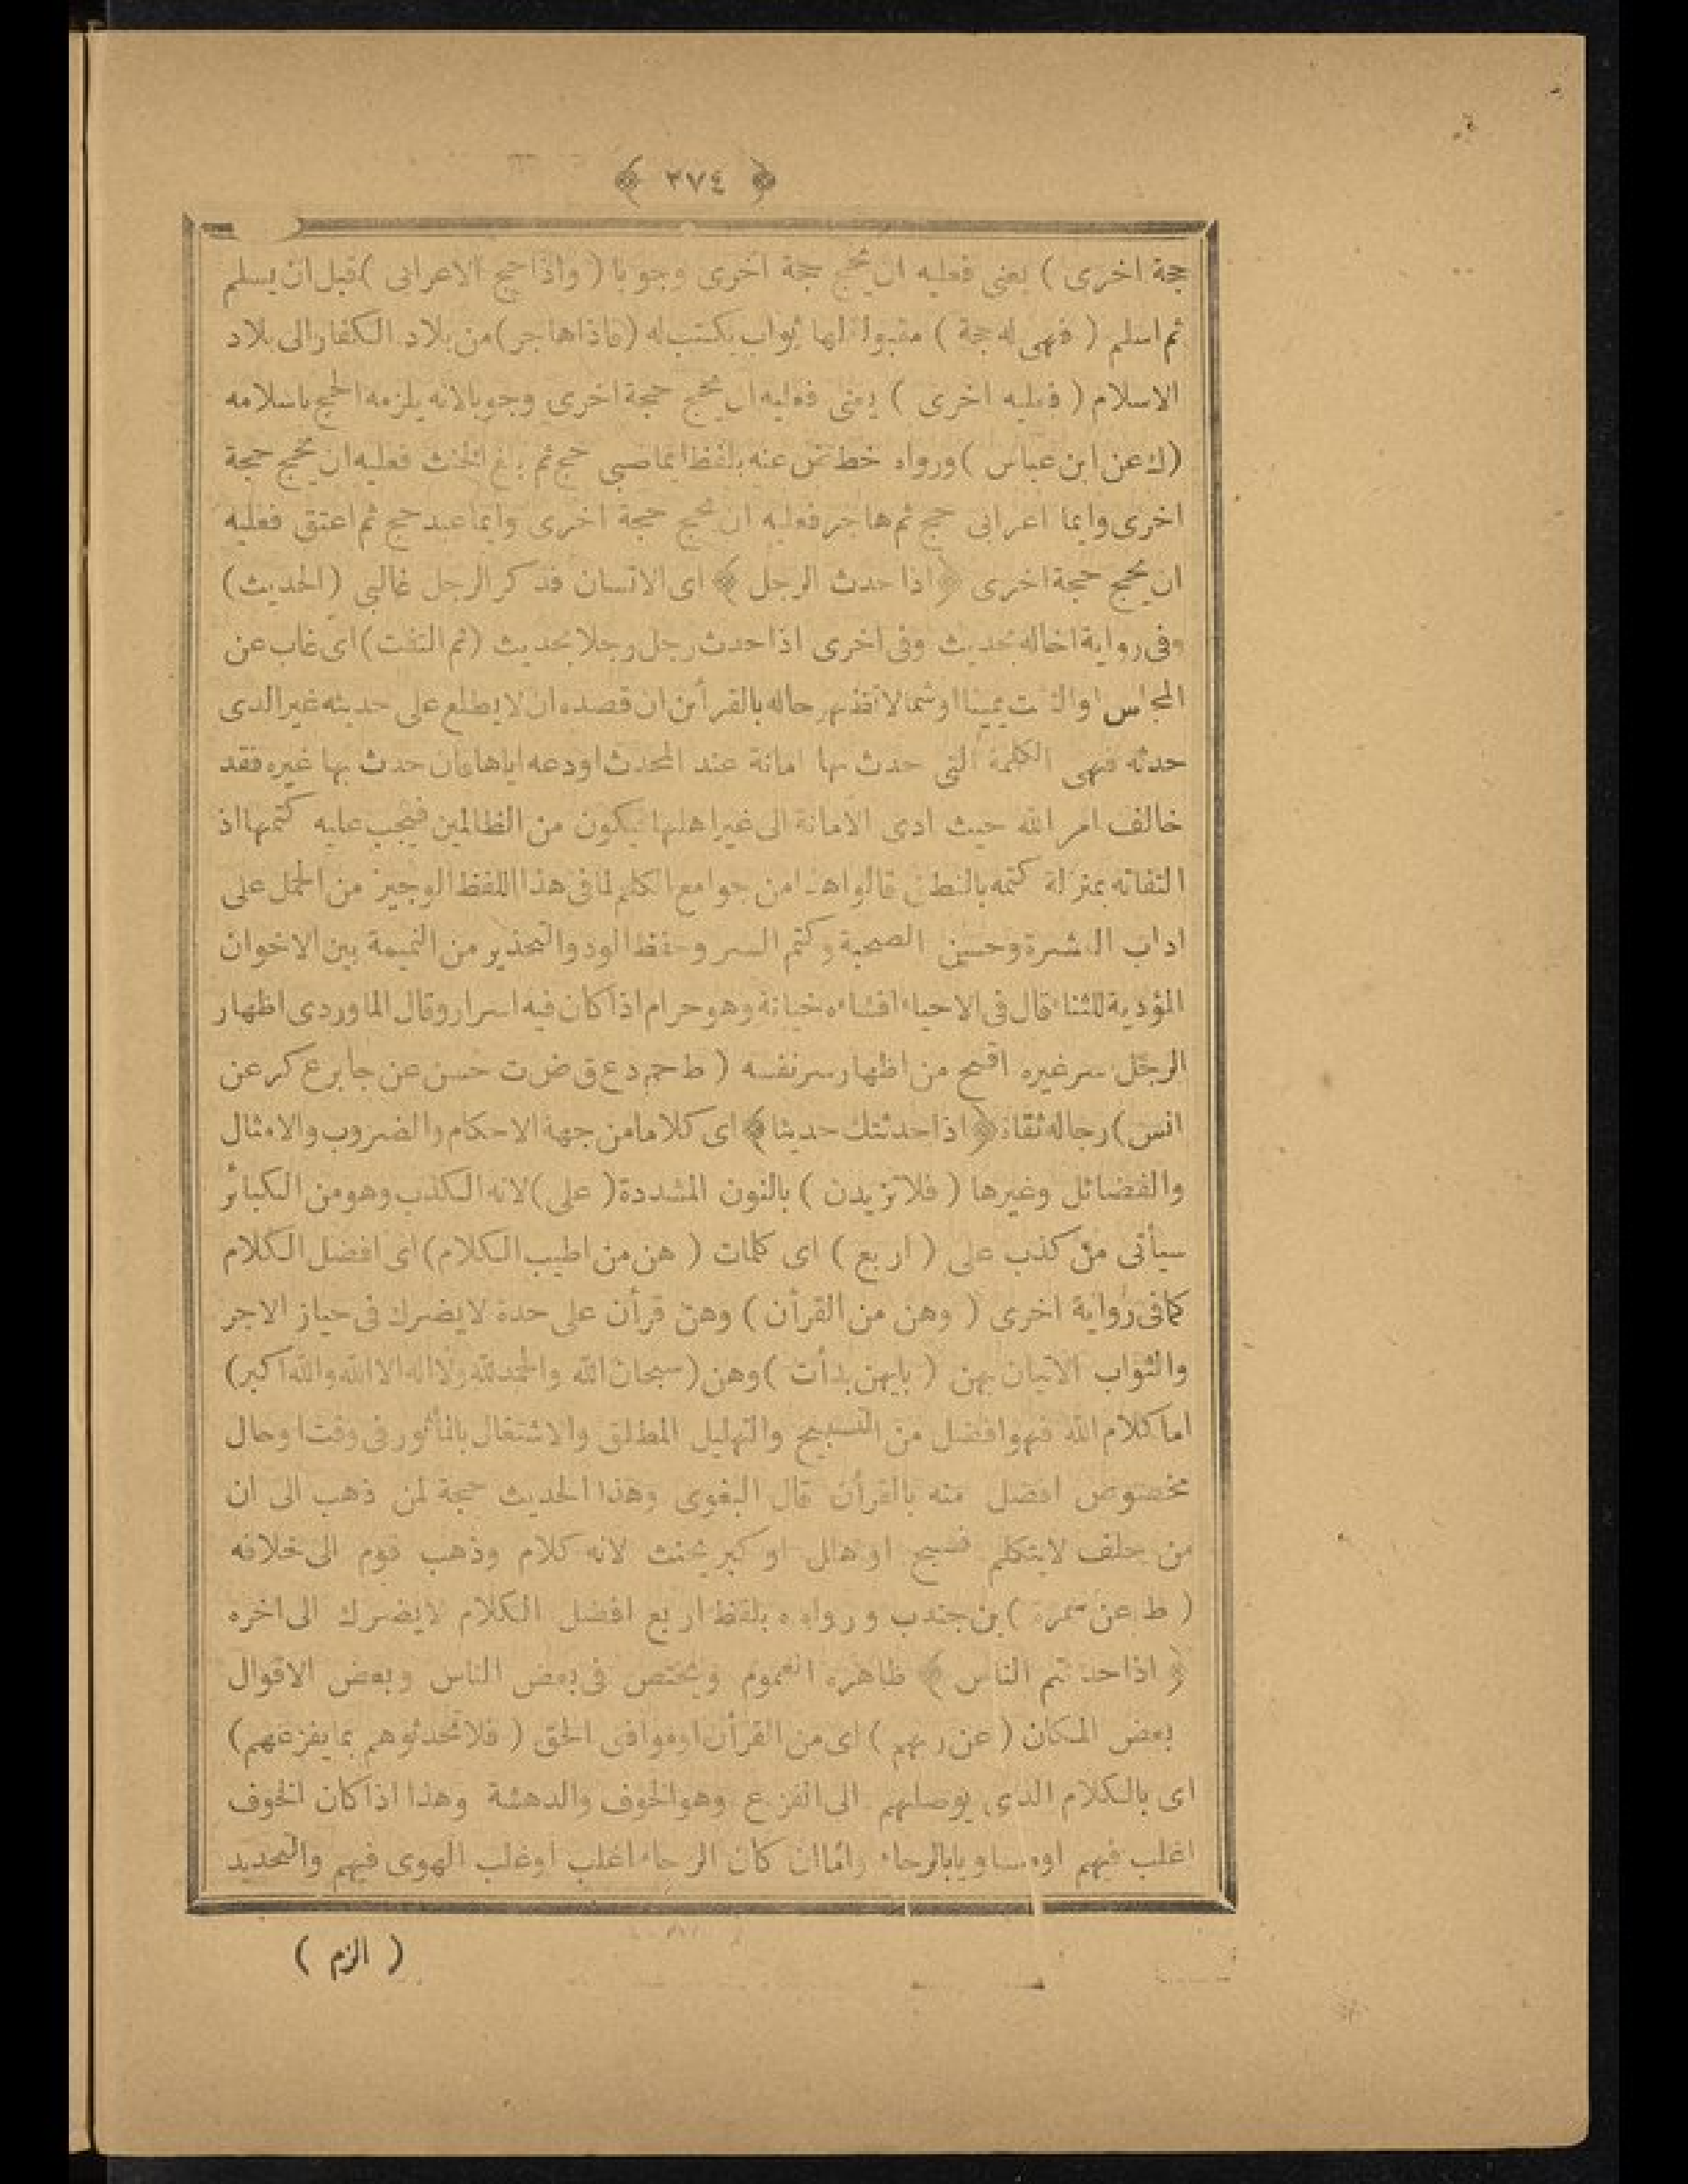 ﴿ ٢٧٤ ﴾
حجة اخرى ) يعنى فعليه ان يحج حجة اخرى وجوبا ( واذا حج الاعرابى ) قبل ان يسلم
ثم اسلم ( فهى له حجة ) مقبولة لها ثواب يكتب له ( فاذا هاجر ) من بلاد الكفار الى بلاد
الاسلام ( فعليه اخرى ) يعنى فعليه ان يحج حجة اخرى وجوبا لانه يلزمه الحج باسلامه
( ك عن ابن عباس ) ورواه خط ض عنه بلفظ ايما صبى حج ثم بلغ الحنث فعليه ان يحج حجة
اخرى وايما اعرابى حج ثم هاجر فعليه ان يحج حجة اخرى وايما عبد حج ثم اعتق فعليه
ان يحج حجة اخرى ﴿ اذا حدث الرجل ﴾ اى الانسان فذكر الرجل غالبى ( الحديث )
وفى رواية اخاله بحديث وفى اخرى اذا حدث رجل رجلا بحديث ( ثم التفت ) اى غاب عن
المجلس او التفت يمينا او شمالا فظهر حاله بالقرأن ان قصده ان لا يطلع على حديثه غير الذى
حدثه فهى الكلمة التى حدث بها امانة عند المحدث اودعه اياها فان حدث بها غيره فقد
خالف امر الله حيث ادى الامانة الى غير اهلها فيكون من الظالمين فيجب عليه كتمها اذ
التفاته بمنزلة كتمه بالنطق قالوا هذا من جوامع الكلم لما فى هذا اللفظ الوجيز من الحمل على
اداب العشرة وحسن الصحبة وكتم السر وحفظ الود والتحذير من النميمة بين الاخوان
المؤدية للثنا قال فى الاحياء افشاءه خيانة وهو حرام اذا كان فيه اسرار وقال الماوردى اظهار
الرجل سر غيره اقبح من اظهار سر نفسه ( ط حم د ع ق ض ت حسن عن جابر ع كر عن
انس ) رجاله ثقات ﴿ اذا حدثتك حديثا ﴾ اى كلاما من جهة الاحكام والضروب والامثال
والفضائل وغيرها ( فلا تزيدن ) بالنون المشددة ( على ) لانه الكذب وهو من الكبائر
سيأتى من كذب على ( اربع ) اى كلمات ( هن من اطيب الكلام ) اى افضل الكلام
كما فى رواية اخرى ( وهن من القرأن ) وهن قرأن على حدة لا يضرك فى حياز الاجر
والثواب الاتيان بهن ( بايهن بدأت ) وهن ( سبحان الله والحمد لله ولا اله الا الله والله اكبر )
اما كلام الله فهو افضل من التسبيح والتهليل المطلق والاشتغال بالمأثور فى وقت او حال
مخصوص افضل منه بالقرأن قال البغوى وهذا الحديث حجة لمن ذهب الى ان
من حلف لا يتكلم فسبح او هلل او كبر يحنث لانه كلام وذهب قوم الى خلافه
( ط عن سمرة ) بن جندب ورواه ه بلفظ اربع افضل الكلام لا يضرك الى اخره
﴿ اذا حدثتم الناس ﴾ ظاهره العموم ويختص فى بعض الناس وبعض الاقوال
بعض المكان ( عن ربهم ) اى من القرأن او موافق الحق ( فلا تحدثوهم بما يفزعهم )
اى بالكلام الذى يوصلهم الى الفزع وهو الخوف والدهشة وهذا اذا كان الخوف
اغلب فيهم او مساويا بالرجاء واما ان كان الرجاء اغلب او غلب الهوى فيهم والتحديد
( الزم )